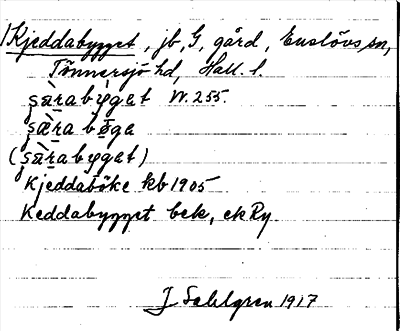 1) Kjeddabygget, jb, G, gård, Enslövs sn,
Tönnersjö hd, Hall. l.
şæ̀rabýget W. 255.
şæ̀ra bøga
(şæ̀rabýget)
Kjeddaböke kb 1905
Keddabygget bek, ekRy.
J Sahlgren 1917